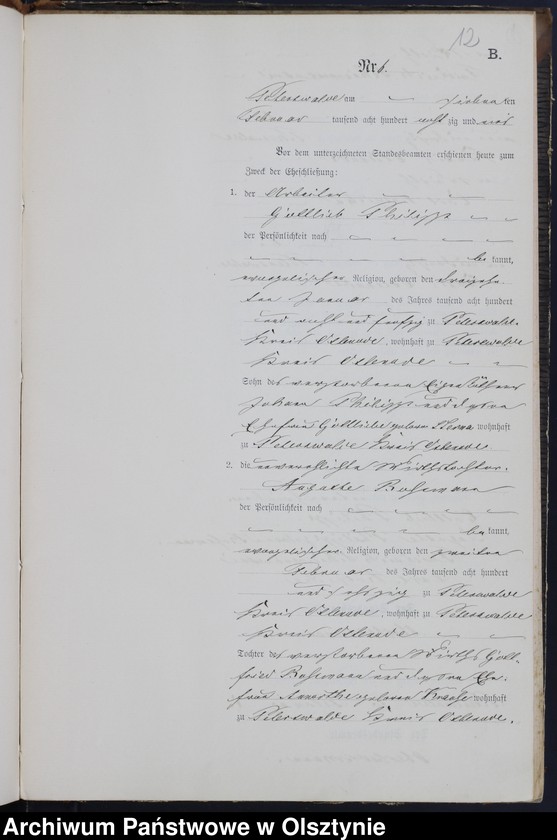 12
B.
Nr 6.
Peterswalde am — siebenten
Februar tausend acht hundert acht zig und
Vor dem unterzeichneten Standesbeamten erschienen heute zum
Zweck der Eheschließung:
1. der Arbeiter — —
Gottlieb Philipp — —
der Persönlichkeit nach — — — —
— — — — — be kannt,
evangelischer Religion, geboren den dreizehn-
ten Januar des Jahres tausend acht hundert
und acht und fünfzig zu Peterswalde
Kreis Osterode, wohnhaft zu Peterswalde
Kreis Osterode — —
Sohn des verstorbenen Eigenkäthners
Johann Philipp und dessen
Ehefrau Gottliebe geboren wohnhaft
zu Peterswalde Kreis Osterode.
2. die unverehelichte Wirthstochter
Auguste
der Persönlichkeit nach — — — —
— — — — — be kannt,
evangelischer Religion, geboren den zweiten
Februar des Jahres tausend acht hundert
und sechszig zu Peterswalde
Kreis Osterode, wohnhaft zu Peterswalde
Kreis Osterode — —
Tochter des verstorbenen Wirths Gott-
fried und dessen Ehe-
frau geboren Krause wohnhaft
zu Peterswalde Kreis Osterode.
Archiwum Państwowe w Olsztynie